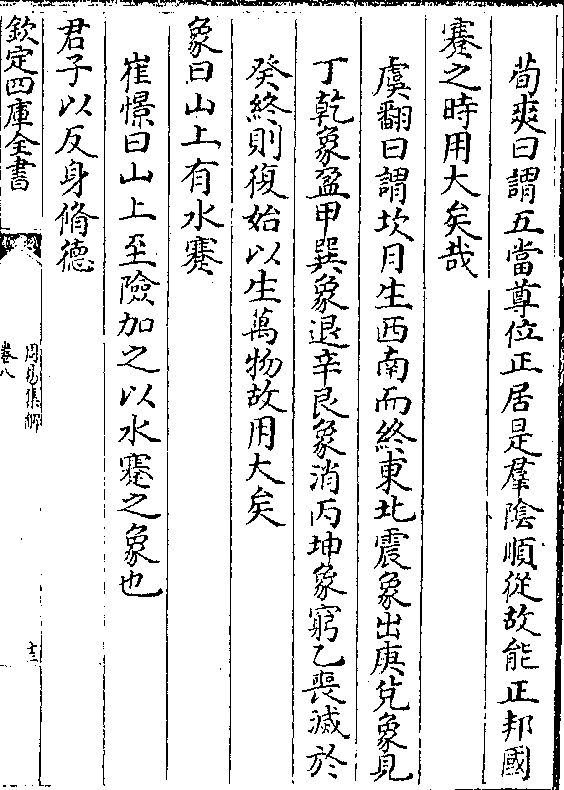 荀爽曰謂五當尊位正居是羣陰順從故能正邦國
蹇之時用大矣哉
虞翻曰謂坎月生西南而終東北震象出庚兌象見
丁乾象盈甲巽象退辛艮象消丙坤象窮乙喪滅於
癸終則復始以生萬物故用大矣
象曰山上有水蹇
崔憬曰山上至險加之以水蹇之象也
君子以反身脩德
欽定四庫全書
周易集解
卷八
十二